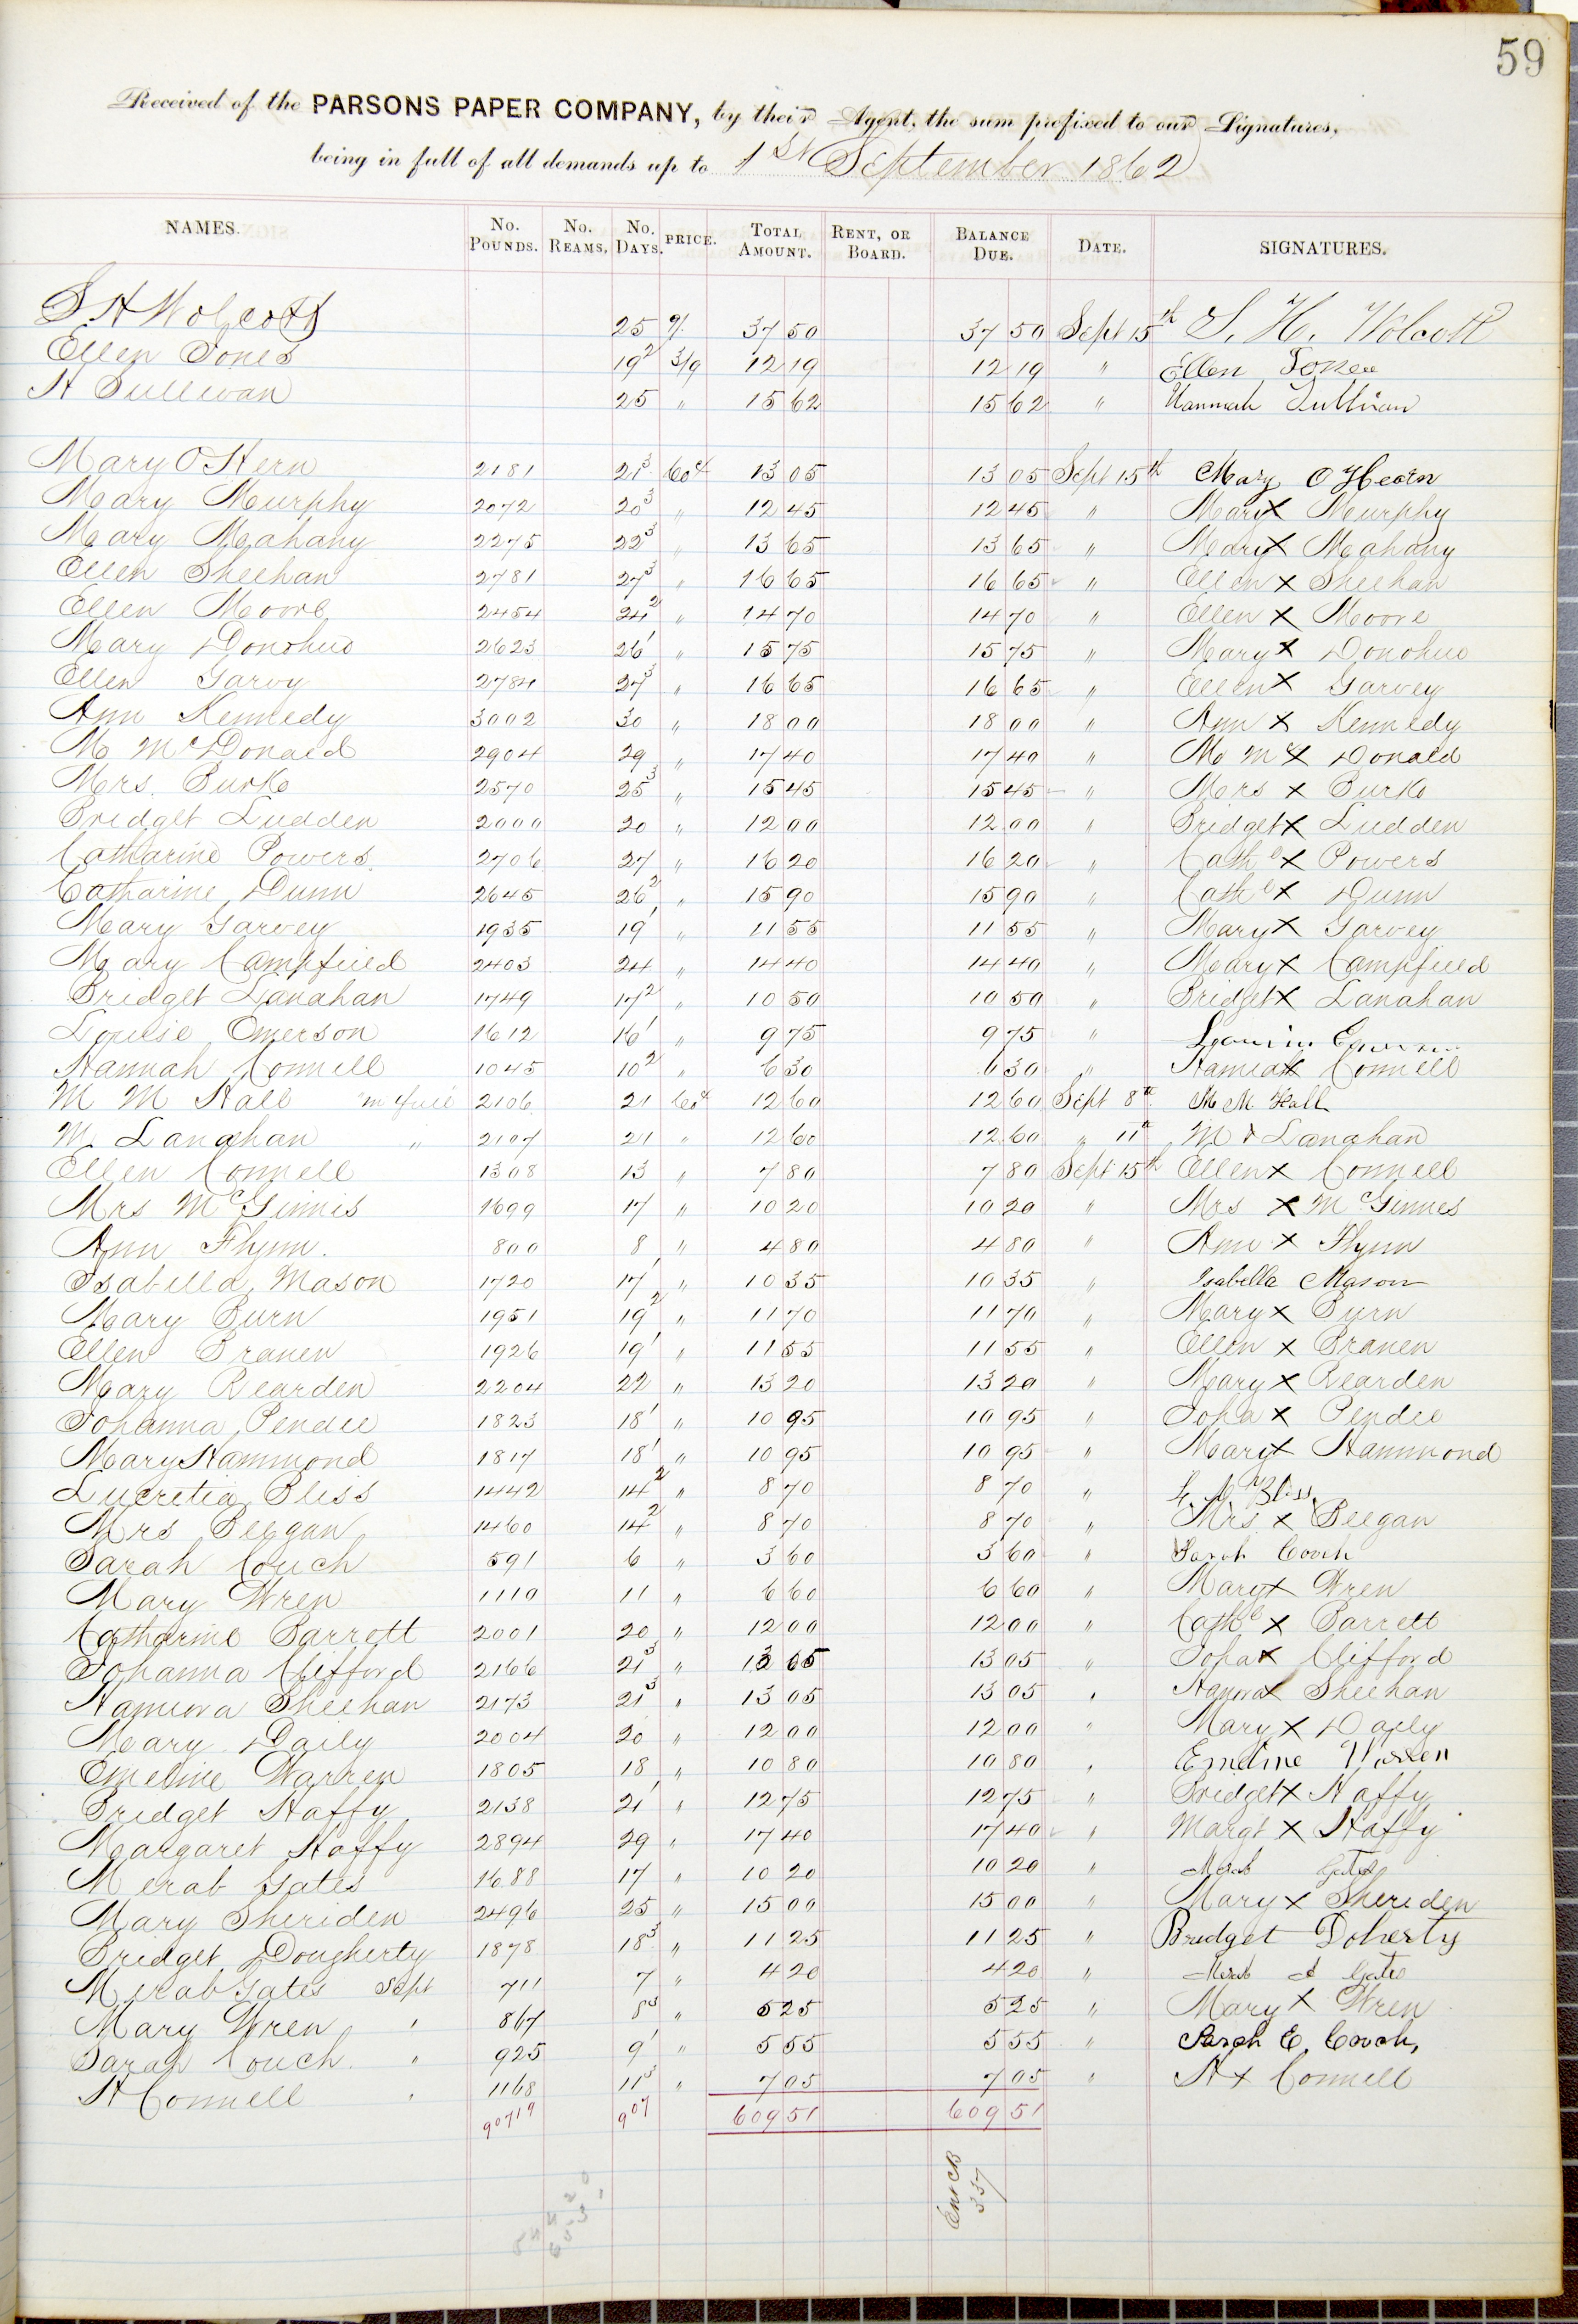 59
Received of the PARSONS PAPER COMPANY, by their Agent, the sum prefixed to our Signatures,
being in full of all demands up to 1st September 1862
NAMES. No. Pounds. No. Reams. No. Days. PRICE. Total Amount. Rent, or Board. Balance Due. Date. SIGNATURES.
S H Wolcott 25 9/. 37 50 37 50 Sept 15th S. H. Wolcott
Ellen Jones 19 2 3/9 12 19 12 19 " Ellen Jones
H Sullivan 25 " 15 62 15 62 " Hannah Sullivan
Mary O Hern 2181 21 3 60¢ 13 05 13 05 Sept 15th Mary O Hearn
Mary Murphy 2072 20 3 " 12 45 12 45 " Mary X Murphy
Mary Mahany 2275 22 3 " 13 65 13 65 " Mary X Mahany
Ellen Sheehan 2781 27 3 " 16 65 16 65 " Ellen X Sheehan
Ellen Moore 2454 24 2 " 14 70 14 70 " Ellen X Moore
Mary Donohue 2623 26 1 " 15 75 15 75 " Mary X Donohue
Ellen Garvy 2784 27 3 " 16 65 16 65 " Ellen X Garvey
Ann Kennedy 3002 30 " 18 00 18 00 " Ann X Kennedy
M McDonald 2904 29 " 17 40 17 40 " M Mc X Donald
Mrs. Burke 2570 25 3 " 15 45 15 45 " Mrs X Burke
Bridget Ludden 2000 20 " 12 00 12 00 " Bridget X Ludden
Catharine Powers 2706 27 " 16 20 16 20 " Cathe X Powers
Catharine Dunn 2645 26 2 " 15 90 15 90 " Cathe X Dunn
Mary Garvey 1935 19 1 " 11 55 11 55 " Mary X Garvey
Mary Campfield 2403 24 " 14 40 14 40 " Mary X Campfield
Bridget Lanahan 1749 17 2 " 10 50 10 50 " Bridget X Lanahan
Louise Emerson 1612 16 1 " 9 75 9 75 "
Hannah Connell 1045 10 2 " 6 30 6 30 " Hannah X Connell
M M Hall in full 2106 21 60¢ 12 60 12 60 Sept 8th M. M. Hall
M. Lanahan " 2107 21 " 12 60 12 60 " 11th M X Lanahan
Ellen Connell 1308 13 " 7 80 7 80 Sept 15th Ellen X Connell
Mrs McGinnis 1699 17 " 10 20 10 20 " Mrs X McGinnes
Ann Flynn. 800 8 " 4 80 4 80 " Ann X Flynn
Isabella Mason 1720 17 1 " 10 35 10 35 " Isabella Mason
Mary Burn 1951 19 2 " 11 70 11 70 " Mary X Byrn
Ellen Branen 1926 19 1 " 11 55 11 55 " Ellen X Branen
Mary Rearden 2204 22 " 13 20 13 20 " Mary X Rearden
Johanna Pendee 1823 18 1 " 10 95 10 95 " Joha X Pendee
Mary Hammond 1817 18 1 " 10 95 10 95 " Mary X Hammond
Lucretia Bliss 1442 14 2 " 8 70 8 70 " L. M Bliss.
Mrs Beegan 1460 14 2 " 8 70 8 70 " Mrs X Beegan
Sarah Couch 591 6 " 3 60 3 60 " Sarah Couch
Mary Wren 1110 11 " 6 60 6 60 " Mary X Wren
Catharine Barrett 2001 20 " 12 00 12 00 " Cathe X Barrett
Johanna Clifford 2166 21 3 " 13 05 13 05 " Joha X Clifford
Hannora Sheehan 2173 21 3 " 13 05 13 05 " Hanora X Sheehan
Mary Daily 2004 20 " 12 00 12 00 " Mary X Daily
Emeline Warren 1805 18 " 10 80 10 80 " Emeline Warren
Bridget Haffy 2138 21 1 " 12 75 12 75 " Bridget X Haffy
Margaret Haffy 2894 29 " 17 40 17 40 " Margt X Haffy
Merab Gates 1688 17 " 10 20 10 20 " Merab Gates
Mary Sheriden 2496 25 " 15 00 15 00 " Mary X Sheriden
Bridget Dougherty 1878 18 3 " 11 25 11 25 " Bridget Doherty
Merab Gates Sept 711 7 " 4 20 4 20 " Merab A Gates
Mary Wren " 867 8 3 " 5 25 5 25 " Mary X Wren
Sarah Couch " 925 9 1 " 5 55 5 55 " Sarah E. Couch,
H Connell " 1168 11 3 " 7 05 7 05 " H X Connell
90719 907 609 51 609 51
Ent CB
357